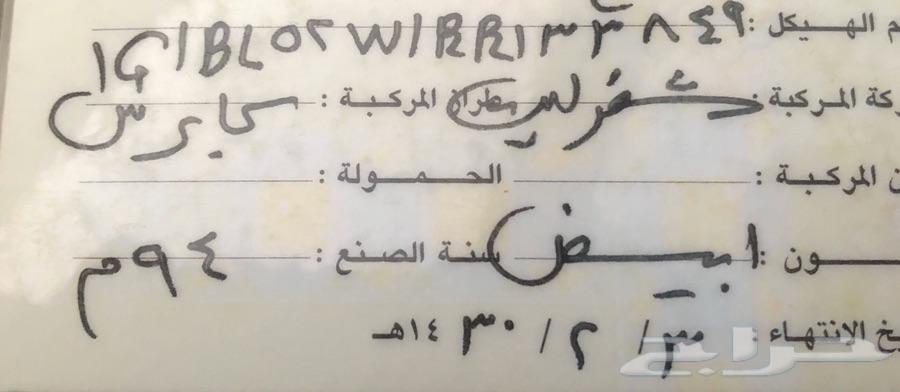 م الهيكل: ١G١BL٥٢W١RR١٣٣٨٤٩
كة المركبة: شفرليه طراز المركبة: كابرس
ن المركبة: الحمولة:
ـون: ابيض سنة الصنع: ٩٤م
يخ الانتهاء: ٣٠ / ٢ / ١٤٣٠هـ
حراج